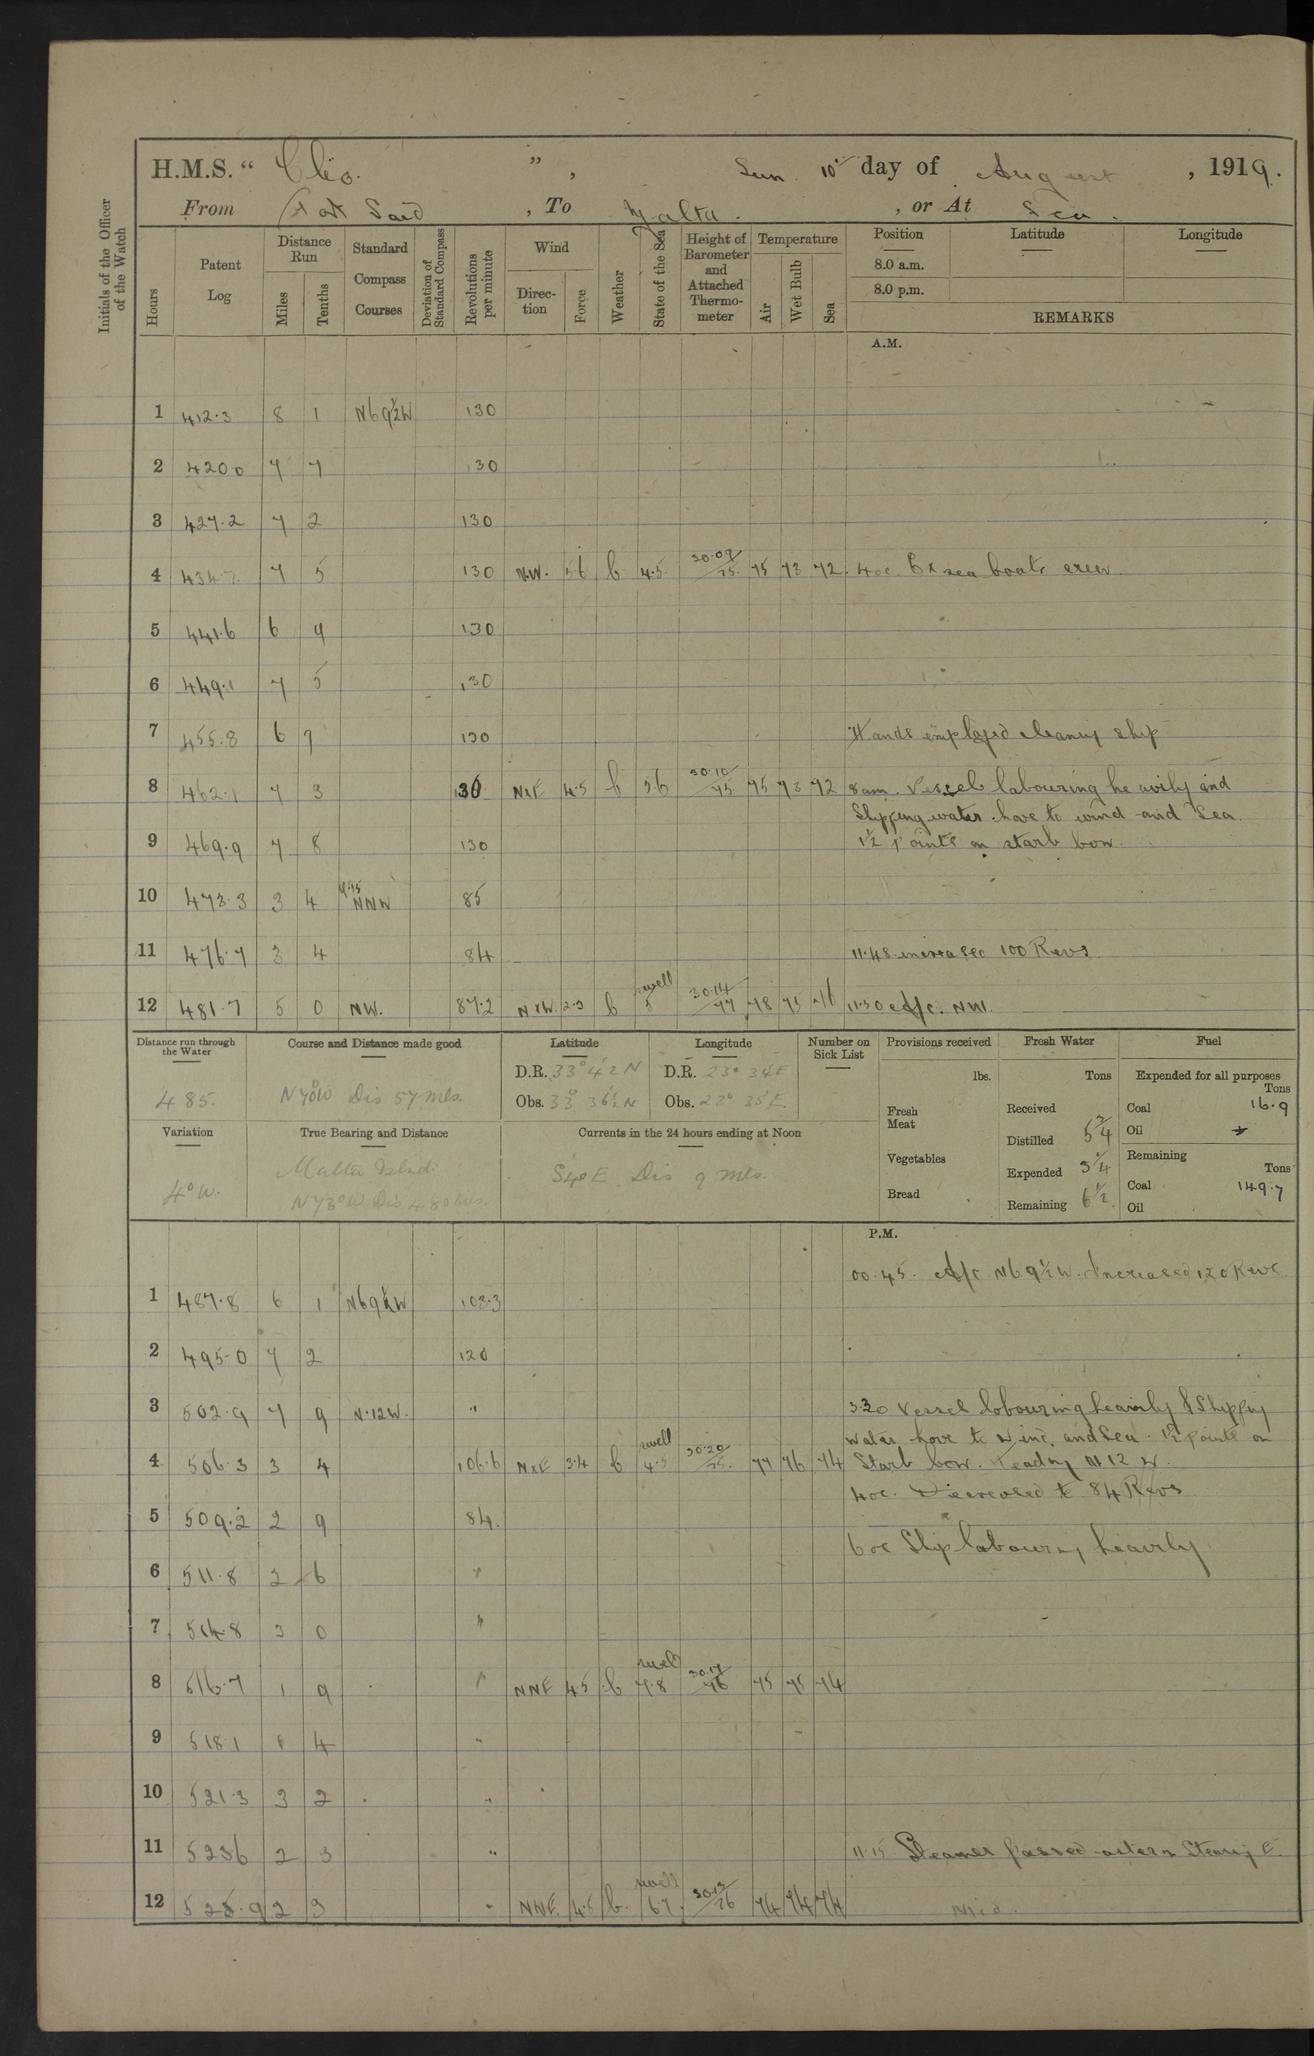 H.M.S. “ Clio. ”, Sun 10th day of August, 1919.
From Port Said, To Malta., or At Sea.
Initials of the Officer of the Watch
Hours
Patent Log
Distance Run
Miles
Tenths
Standard Compass Courses
Deviation of Standard Compass
Revolutions per minute
Wind
Direction
Force
Weather
State of the Sea
Height of Barometer and Attached Thermometer
Temperature
Air
Wet Bulb
Sea
Position Latitude Longitude
8.0 a.m.
8.0 p.m.
REMARKS
A.M.
1 412.3 8 1 N69½W 130
2 420.0 7 7 130
3 427.2 7 2 130
4 434.7 7 5 130 N.W. 5.6 b 4.5 30.09/75 75 73 72 4oc. Ex sea boats crew
5 441.6 6 9 130
6 449.1 7 5 130
7 455.8 6 7 130 Hands employed cleaning ship
8 462.1 7 3 130 NxE 4.5 b 5.6 30.10/75 75 73 72 8am. Vessel labouring heavily and
Shipping water. hove to wind and Sea.
9 469.9 7 8 130 1½ points on starb bow.
10 473.3 3 4 NNW 85
11 476.7 3 4 84 11.48 increased 100 Revs
12 481.7 5 0 NW. 87.2 NxW. 2.3 b swell 5 30.14/77 78 75 76 11.50 A/c. NW.
Distance run through the Water
485.
Course and Distance made good
N70°W Dis 57 mls.
Latitude
D.R. 33° 42 N
Obs. 33° 36½ N
Longitude
D.R. 23° 34 E
Obs. 23° 35 E.
Number on Sick List
Provisions received
lbs.
Fresh Meat
Vegetables
Bread
Fresh Water
Tons
Received
Distilled 5¾
Expended 3¼
Remaining 6½
Fuel
Expended for all purposes
Tons
Coal 16.9
Oil
Remaining
Tons
Coal 149.7
Oil
Variation
4°W.
True Bearing and Distance
Malta Island:
N73°W Dis 480 mls.
Currents in the 24 hours ending at Noon
S40E Dis 9 mls.
P.M.
00.45. A/c N69½W. Increased 120 Revs
1 487.8 6 1 N69½W 103.3
2 495.0 7 2 120
3 502.9 7 9 N.12W. " 3.30 Vessel labouring heavily & Shipping
water hove to wind and Sea. 1½ points on
4 506.3 3 4 106.6 NxE 3.4 b swell 4.5 30.20/75 77 76 74 Starb bow. Heading N12W.
4oc. Decreased to 84 Revs
5 509.2 2 9 84.
6oc Ship labouring heavily
6 511.8 2 6 "
7 514.8 3 0 "
8 516.7 1 9 " NNE 4.5 b swell 7.8 30.17/76 75 75 74
9 518.1 1 4 "
10 521.3 3 2 "
11 523.6 2 3 " 11.15 Steamer passed astern Steering E.
12 525.9 2 3 " NNE. 4.5 b swell 6.7 30.12/76 74 74 74 Mid.